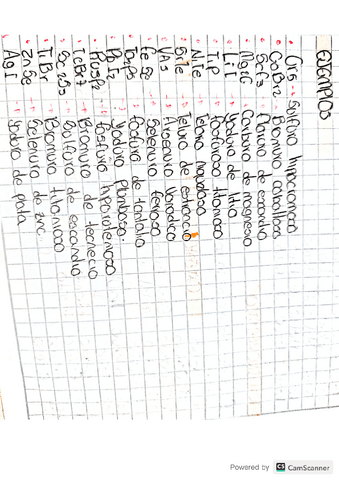 EJEMPLOS
CrS → Sulfuro hipocromoso
CoBr2 → Bromuro cobaltoso
ScF3 → Fluoruro de escandio
Mg2C → Carburo de magnesio
LiI → Yoduro de litio
TiP → fosfuroso titanioso
NiTe → teluro niqueloso
SiTe → teluro de
VAs → Arsenuro Vanadico
FeSe → Selenuro ferroso
TaP5 → fosfuro de tantalo
PbI2 → yoduro Plumboso.
→ fosfuro
TcBr7 → Bromuro de tecnecio
Sc2S3 → Sulfuro de escandio
TiBr → Bromuro titanioso
ZnSe → Selenuro de zinc
AgI → yoduro de plata
Powered by CS CamScanner